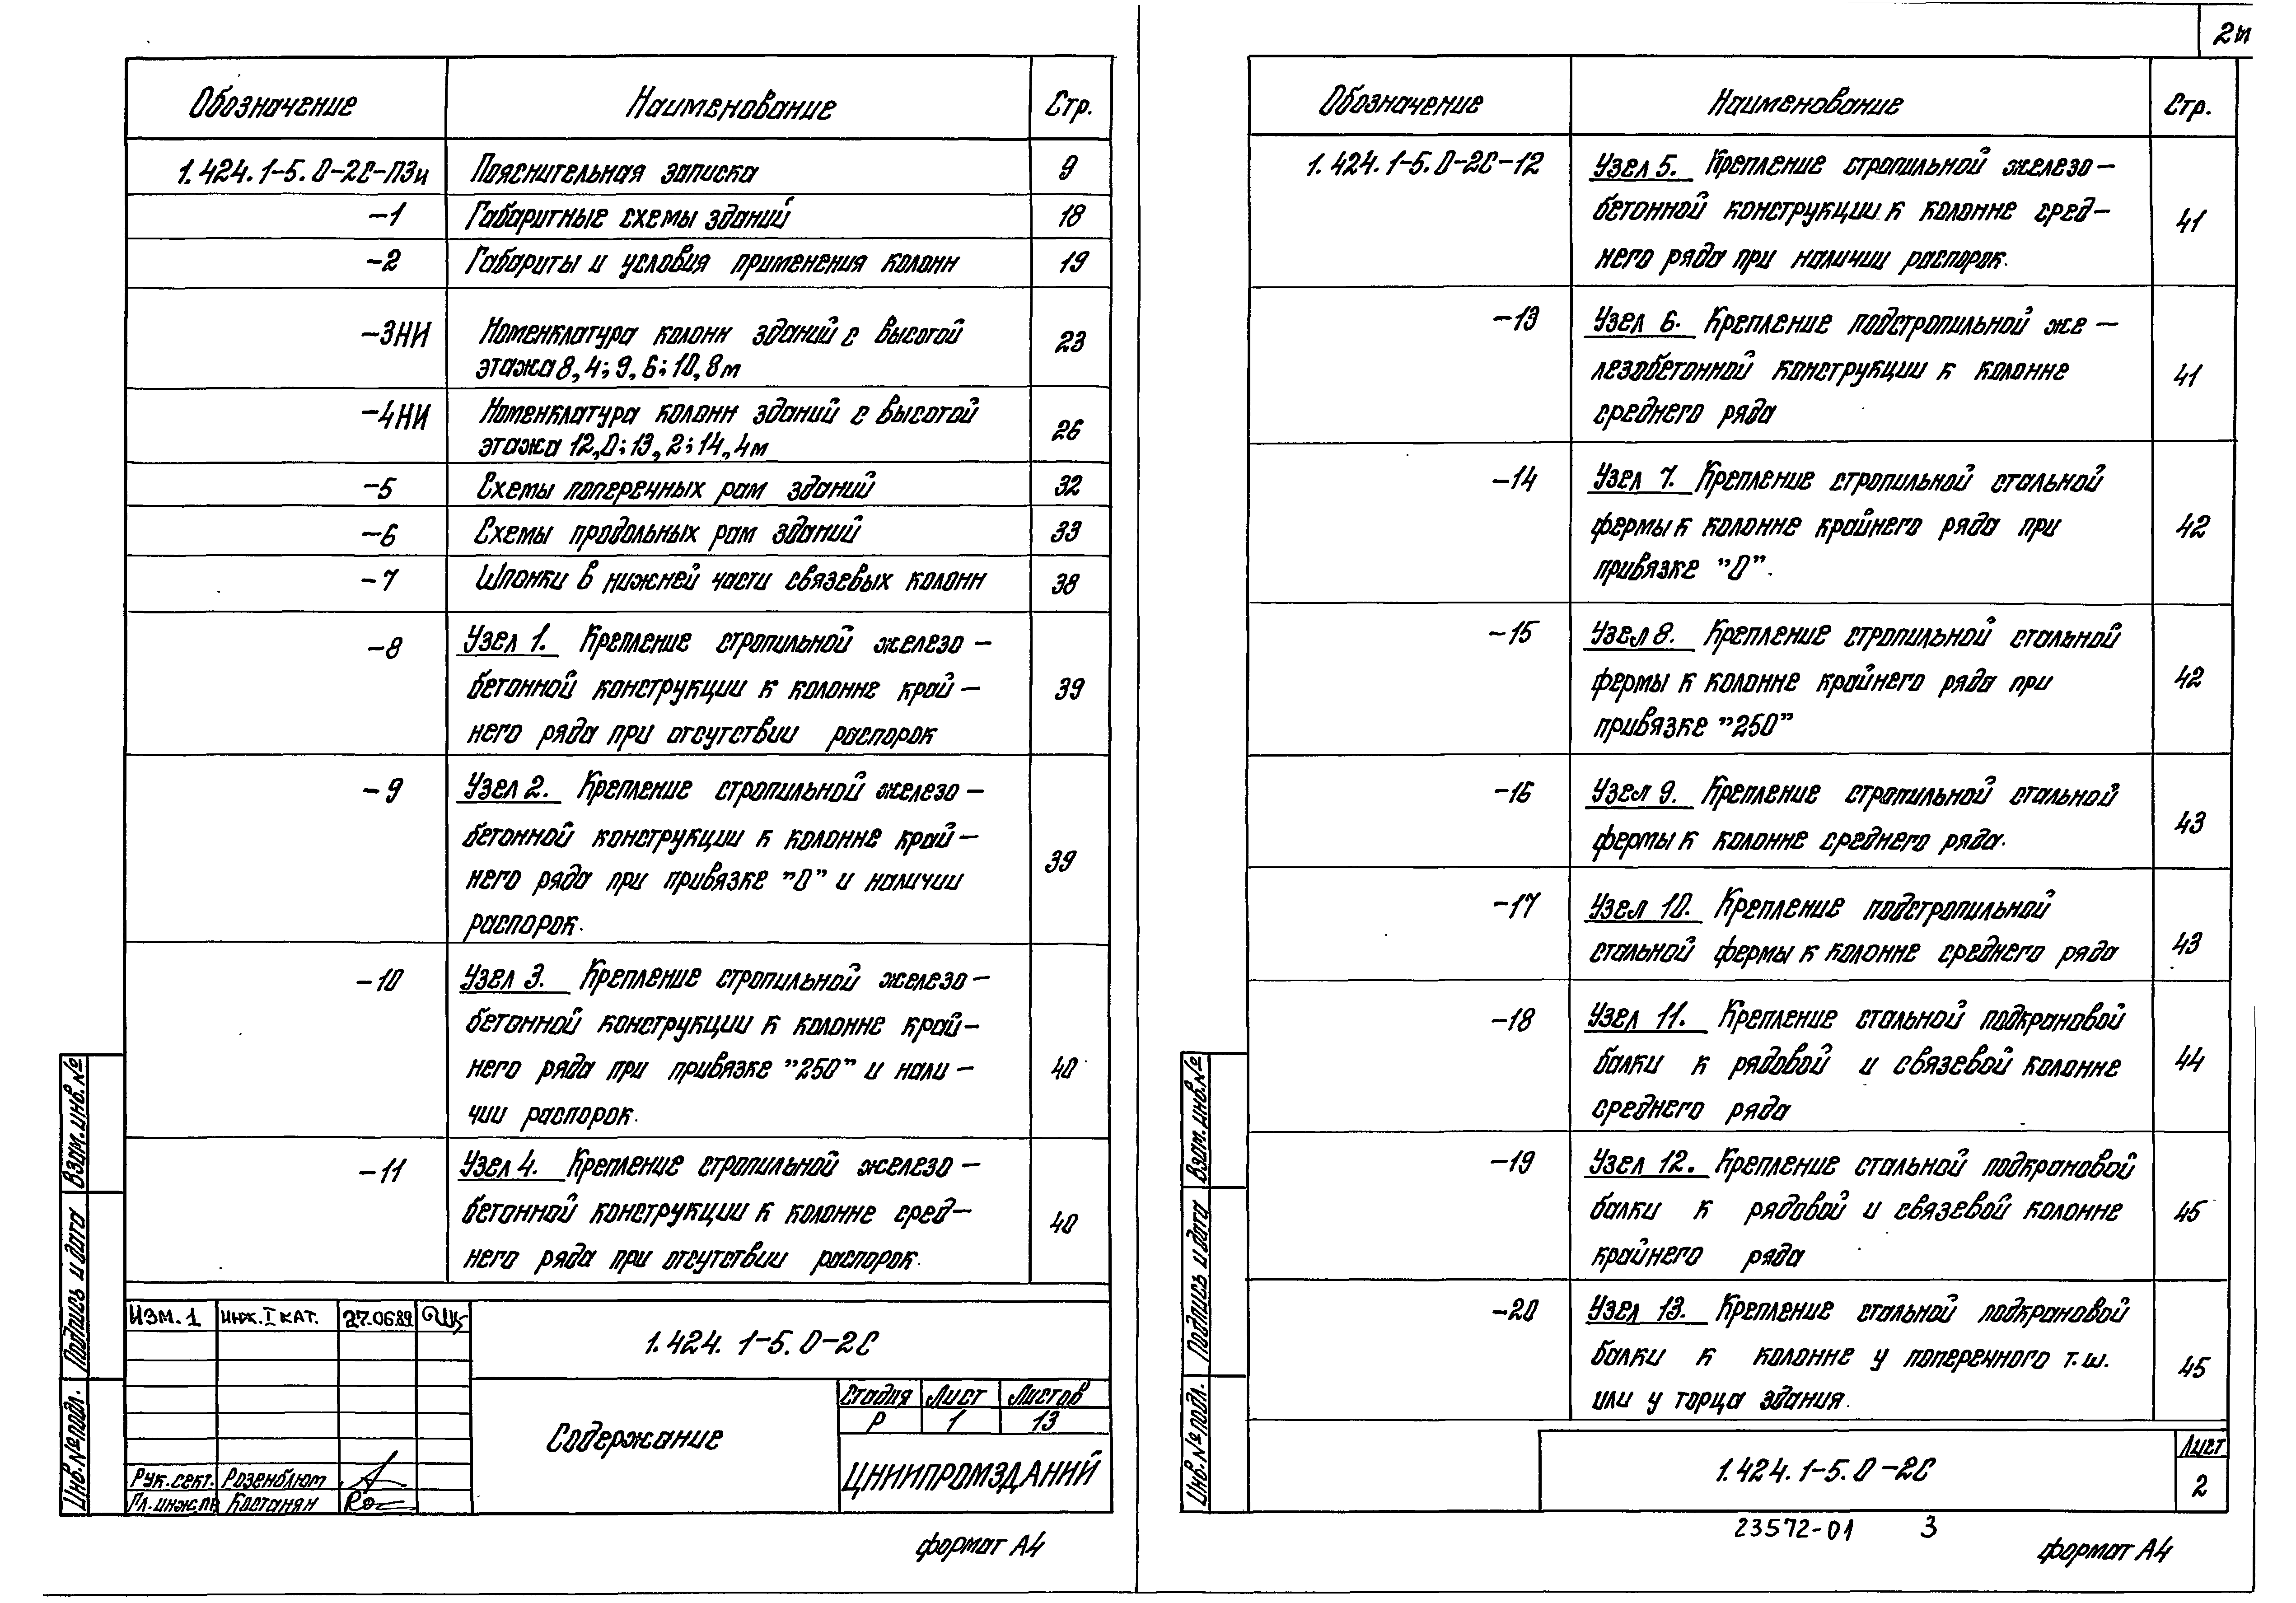 Обозначение Наименование Стр.
1.424.1-5.0-2С-ПЗи Пояснительная записка 9
-1 Габаритные схемы зданий 18
-2 Габариты и условия применения колонн 19
-3НИ Номенклатура колонн зданий с высотой
этажа 8,4; 9,6; 10,8м 23
-4НИ Номенклатура колонн зданий с высотой
этажа 12,0; 13,2; 14,4м 26
-5 Схемы поперечных рам зданий 32
-6 Схемы продольных рам зданий 33
-7 Шпонки в нижней части связевых колонн 38
-8 Узел 1. Крепление стропильной железо-
бетонной конструкции к колонне край- 39
него ряда при отсутствии распорок
-9 Узел 2. Крепление стропильной железо-
бетонной конструкции к колонне край-
него ряда при привязке "0" и наличии 39
распорок.
-10 Узел 3. Крепление стропильной железо-
бетонной конструкции к колонне край-
него ряда при привязке "250" и нали- 40
чии распорок.
-11 Узел 4. Крепление стропильной железо-
бетонной конструкции к колонне сред- 40
него ряда при отсутствии распорок.
Взам. инв. №
Подпись и дата
Инв. № подл.
Изм. 1 инж. I кат. 27.06.89
1.424.1-5.0-2С
Содержание
Стадия Лист Листов
Р 1 13
ЦНИИПРОМЗДАНИЙ
Рук. сект. Розенблюм
Гл. инж. пр Костанян
формат А4
Обозначение Наименование Стр.
1.424.1-5.0-2С-12 Узел 5. Крепление стропильной железо-
бетонной конструкции к колонне сред- 41
него ряда при наличии распорок.
-13 Узел 6. Крепление подстропильной же-
лезобетонной конструкции к колонне 41
среднего ряда
-14 Узел 7. Крепление стропильной стальной
фермы к колонне крайнего ряда при 42
привязке "0".
-15 Узел 8. Крепление стропильной стальной
фермы к колонне крайнего ряда при 42
привязке "250"
-16 Узел 9. Крепление стропильной стальной
фермы к колонне среднего ряда. 43
-17 Узел 10. Крепление подстропильной
стальной фермы к колонне среднего ряда 43
-18 Узел 11. Крепление стальной подкрановой
балки к рядовой и связевой колонне 44
среднего ряда
-19 Узел 12. Крепление стальной подкрановой
балки к рядовой и связевой колонне 45
крайнего ряда
-20 Узел 13. Крепление стальной подкрановой
балки к колонне у поперечного т.ш. 45
или у торца здания.
Взам. инв. №
Подпись и дата
Инв. № подл.
1.424.1-5.0-2С
Лист
2
23572-01 3
формат А4